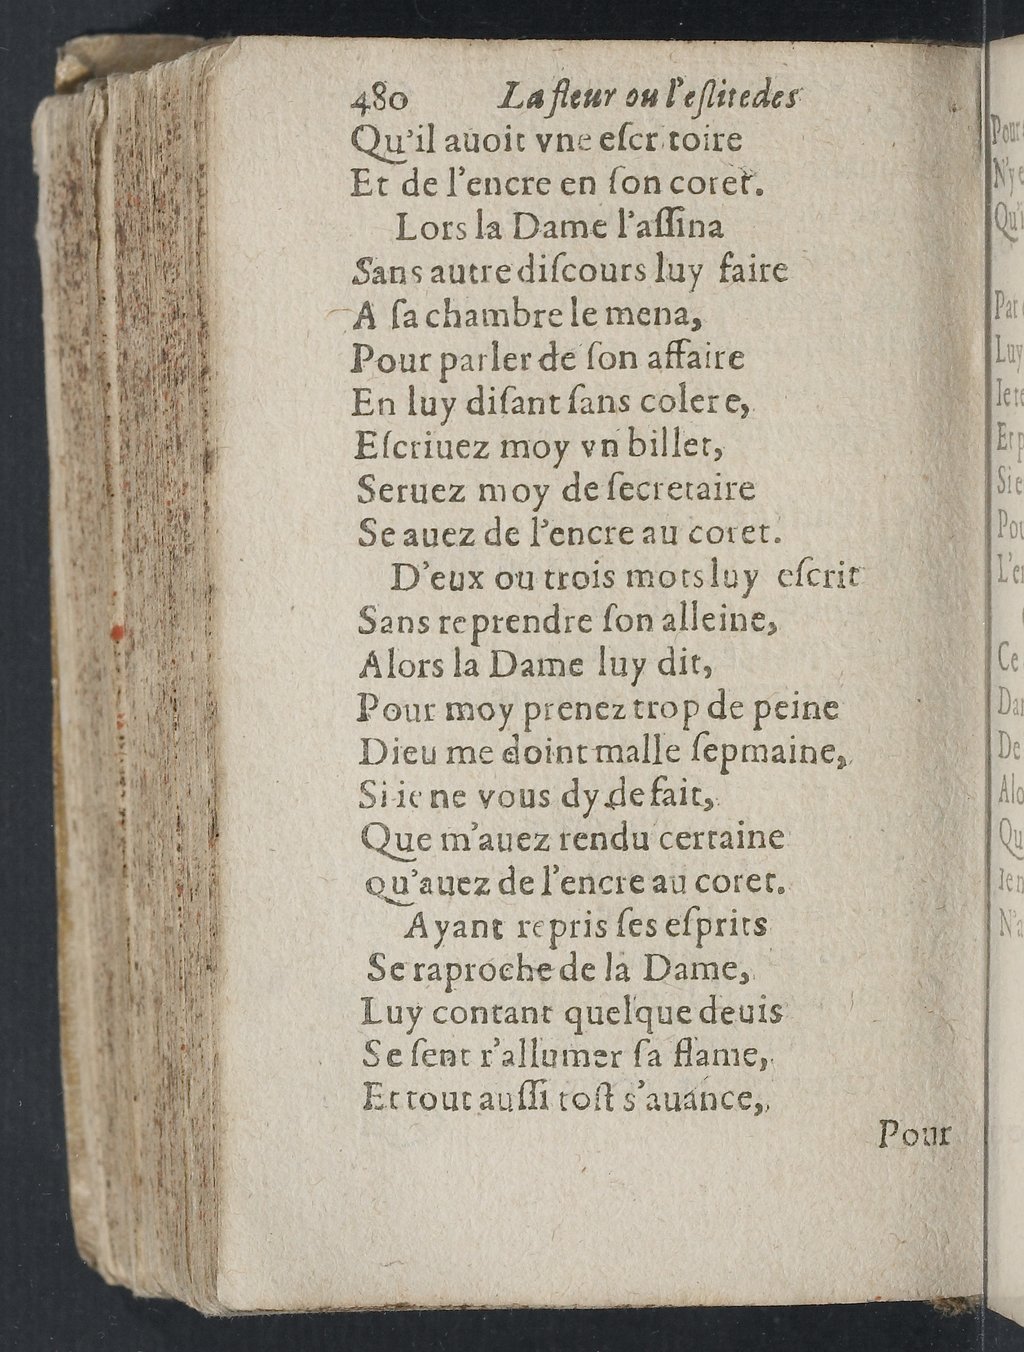 480 La fleur ou l'eſlitedes
Qu'il auoit vne eſcritoire
Et de l'encre en ſon coret.
Lors la Dame l'aſſina
Sans autre diſcours luy faire
A ſa chambre le mena,
Pour parler de ſon affaire
En luy diſant ſans colere,
Eſcriuez moy vn billet,
Seruez moy de ſecretaire
Se auez de l'encre au coret.
D'eux ou trois mots luy eſcrit
Sans reprendre ſon alleine,
Alors la Dame luy dit,
Pour moy prenez trop de peine
Dieu me doint malle ſepmaine,
Si ie ne vous dy de fait,
Que m'auez rendu certaine
qu'auez de l'encre au coret.
Ayant repris ſes eſprits
Se raproche de la Dame,
Luy contant quelque deuis
Se ſent r'allumer ſa flame,
Et tout auſſi toſt s'auance,
Pour